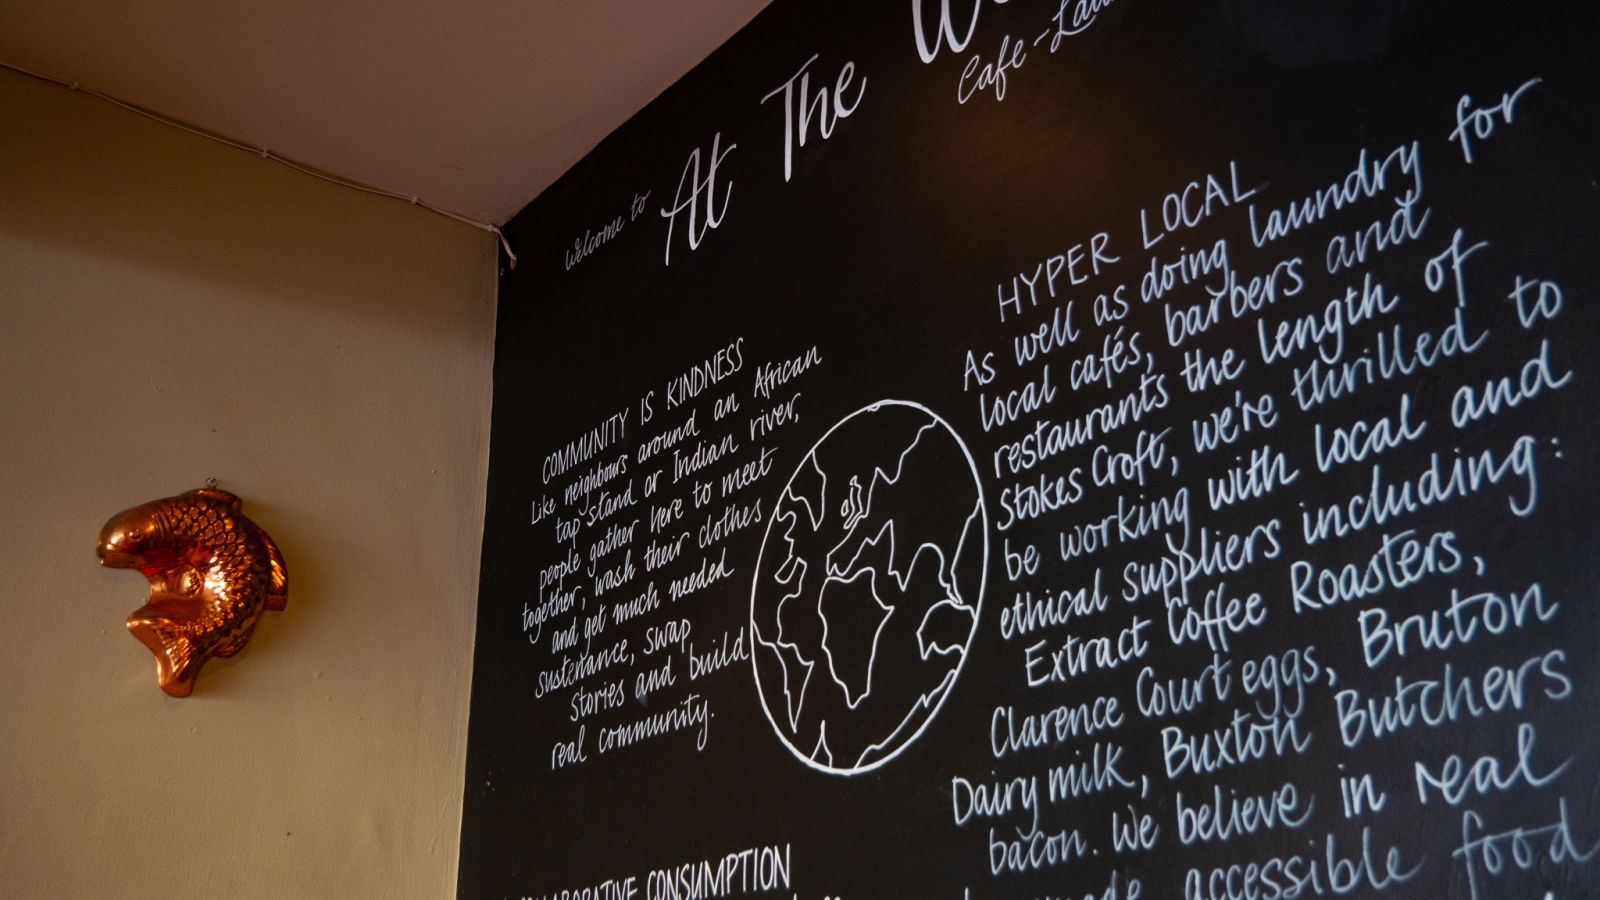 Welcome to
At The
Cafe -
COMMUNITY IS KINDNESS
Like neighbours around an African
tap stand or Indian river,
people gather here to meet
together, wash their clothes
and get much needed
sustenance, swap
stories and build
real community.
CONSUMPTION
HYPER LOCAL
As well as doing laundry for
local cafés, barbers and
restaurants the length of
Stokes Croft, we're thrilled to
be working with local and
ethical suppliers including:
Extract Coffee Roasters,
Clarence Court eggs, Bruton
Dairy milk, Buxton Butchers
bacon. We believe in real
accessible food